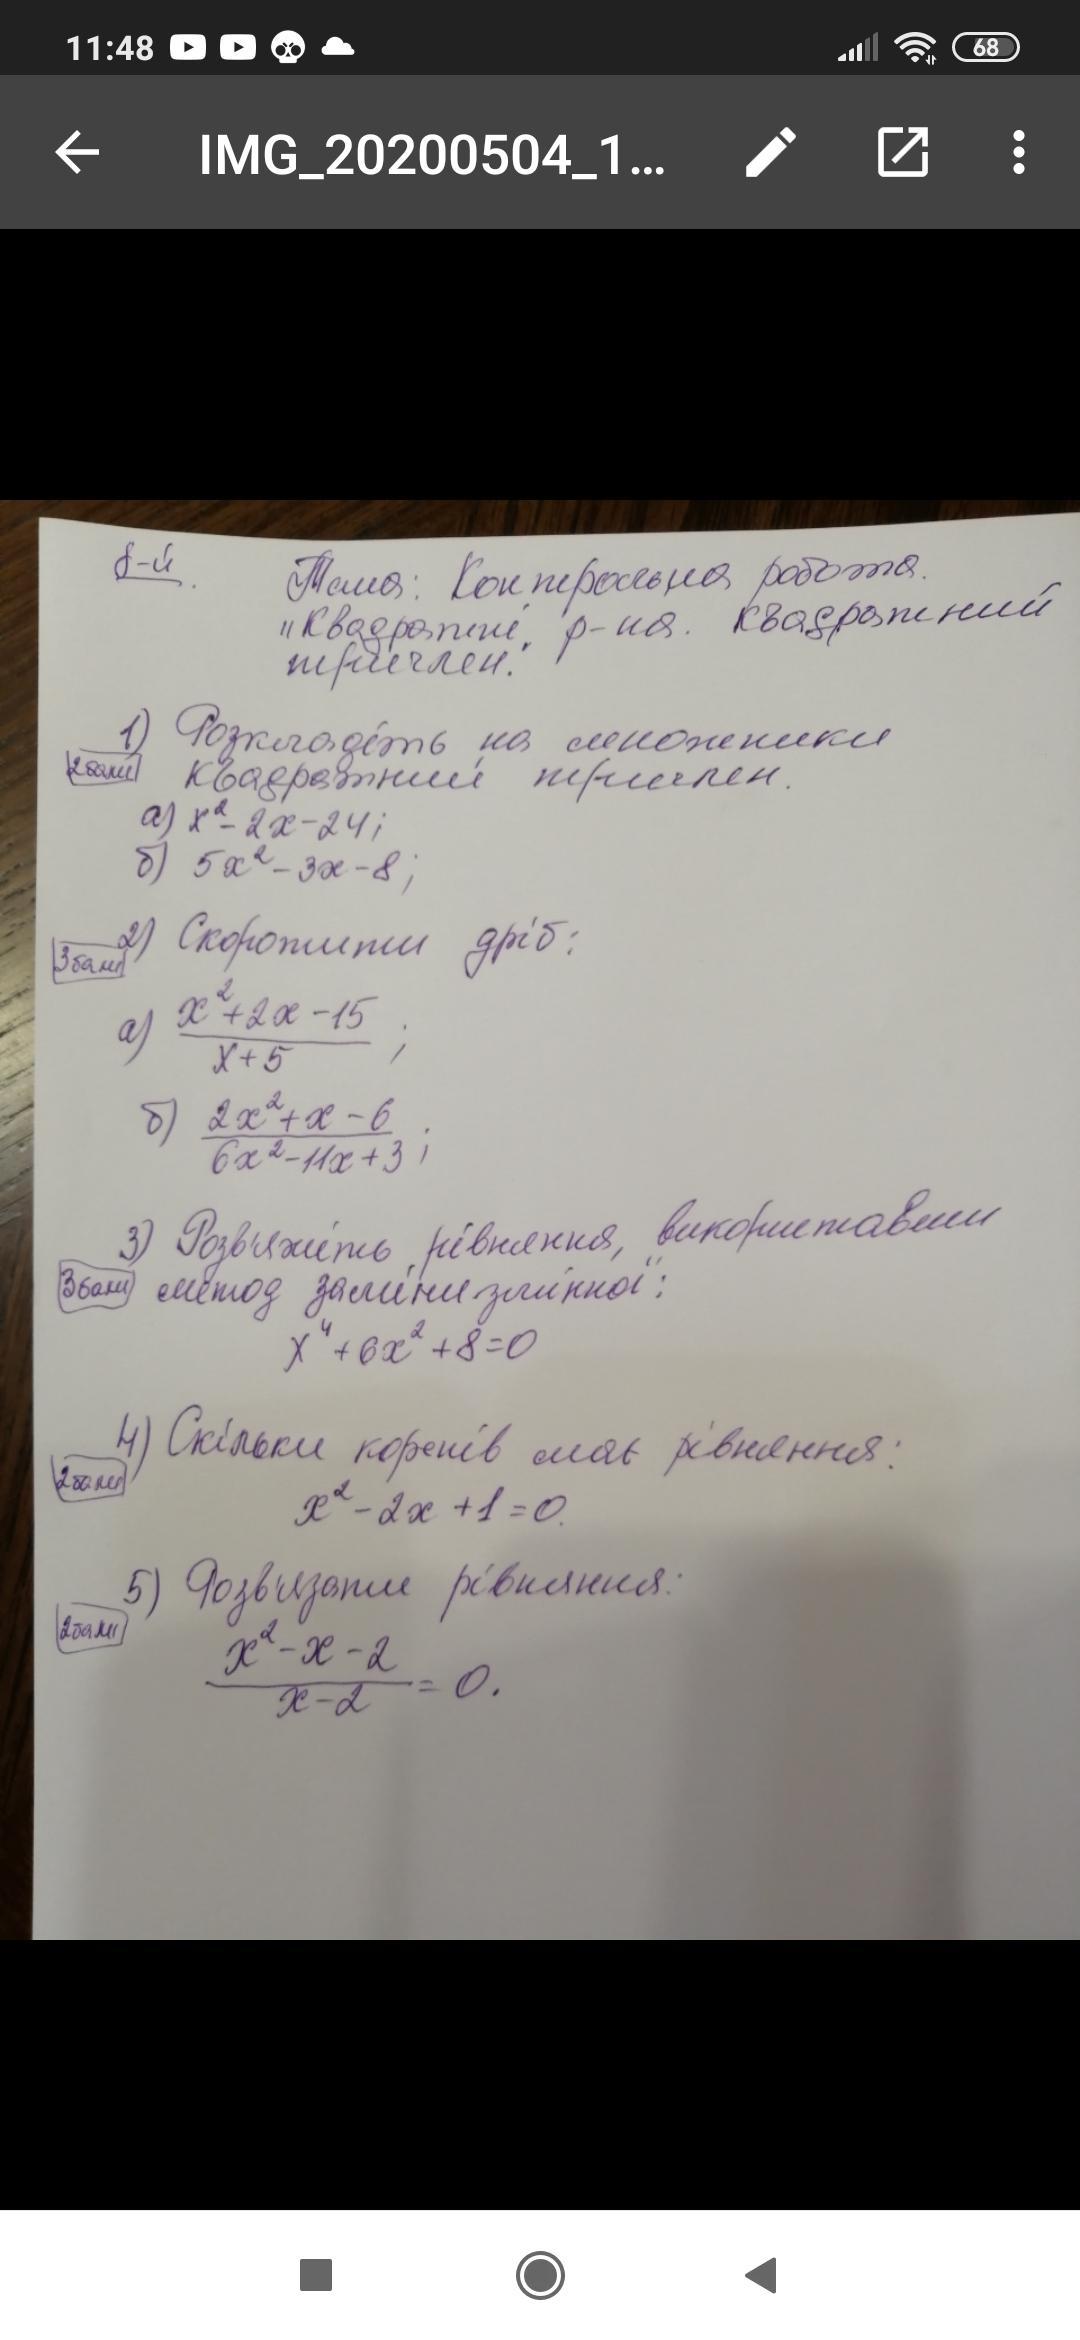 11:48
68
IMG_20200504_1...
8-й. Тема: Контрольна робота.
"Квадратні р-ня. Квадратний
тричлен."
1) Розкладіть на множники
2бали квадратний тричлен.
а) x² - 2x - 24;
б) 5x² - 3x - 8;
2) Скоротити дріб:
3бали
а) (x² + 2x - 15)/(x + 5);
б) (2x² + x - 6)/(6x² - 11x + 3);
3) Розв'яжіть рівняння, використавши
3бали "метод заміни змінної":
x⁴ + 6x² + 8 = 0
4) Скільки коренів має рівняння:
2бали
x² - 2x + 1 = 0.
5) Розв'язати рівняння:
2бали
(x² - x - 2)/(x - 2) = 0.